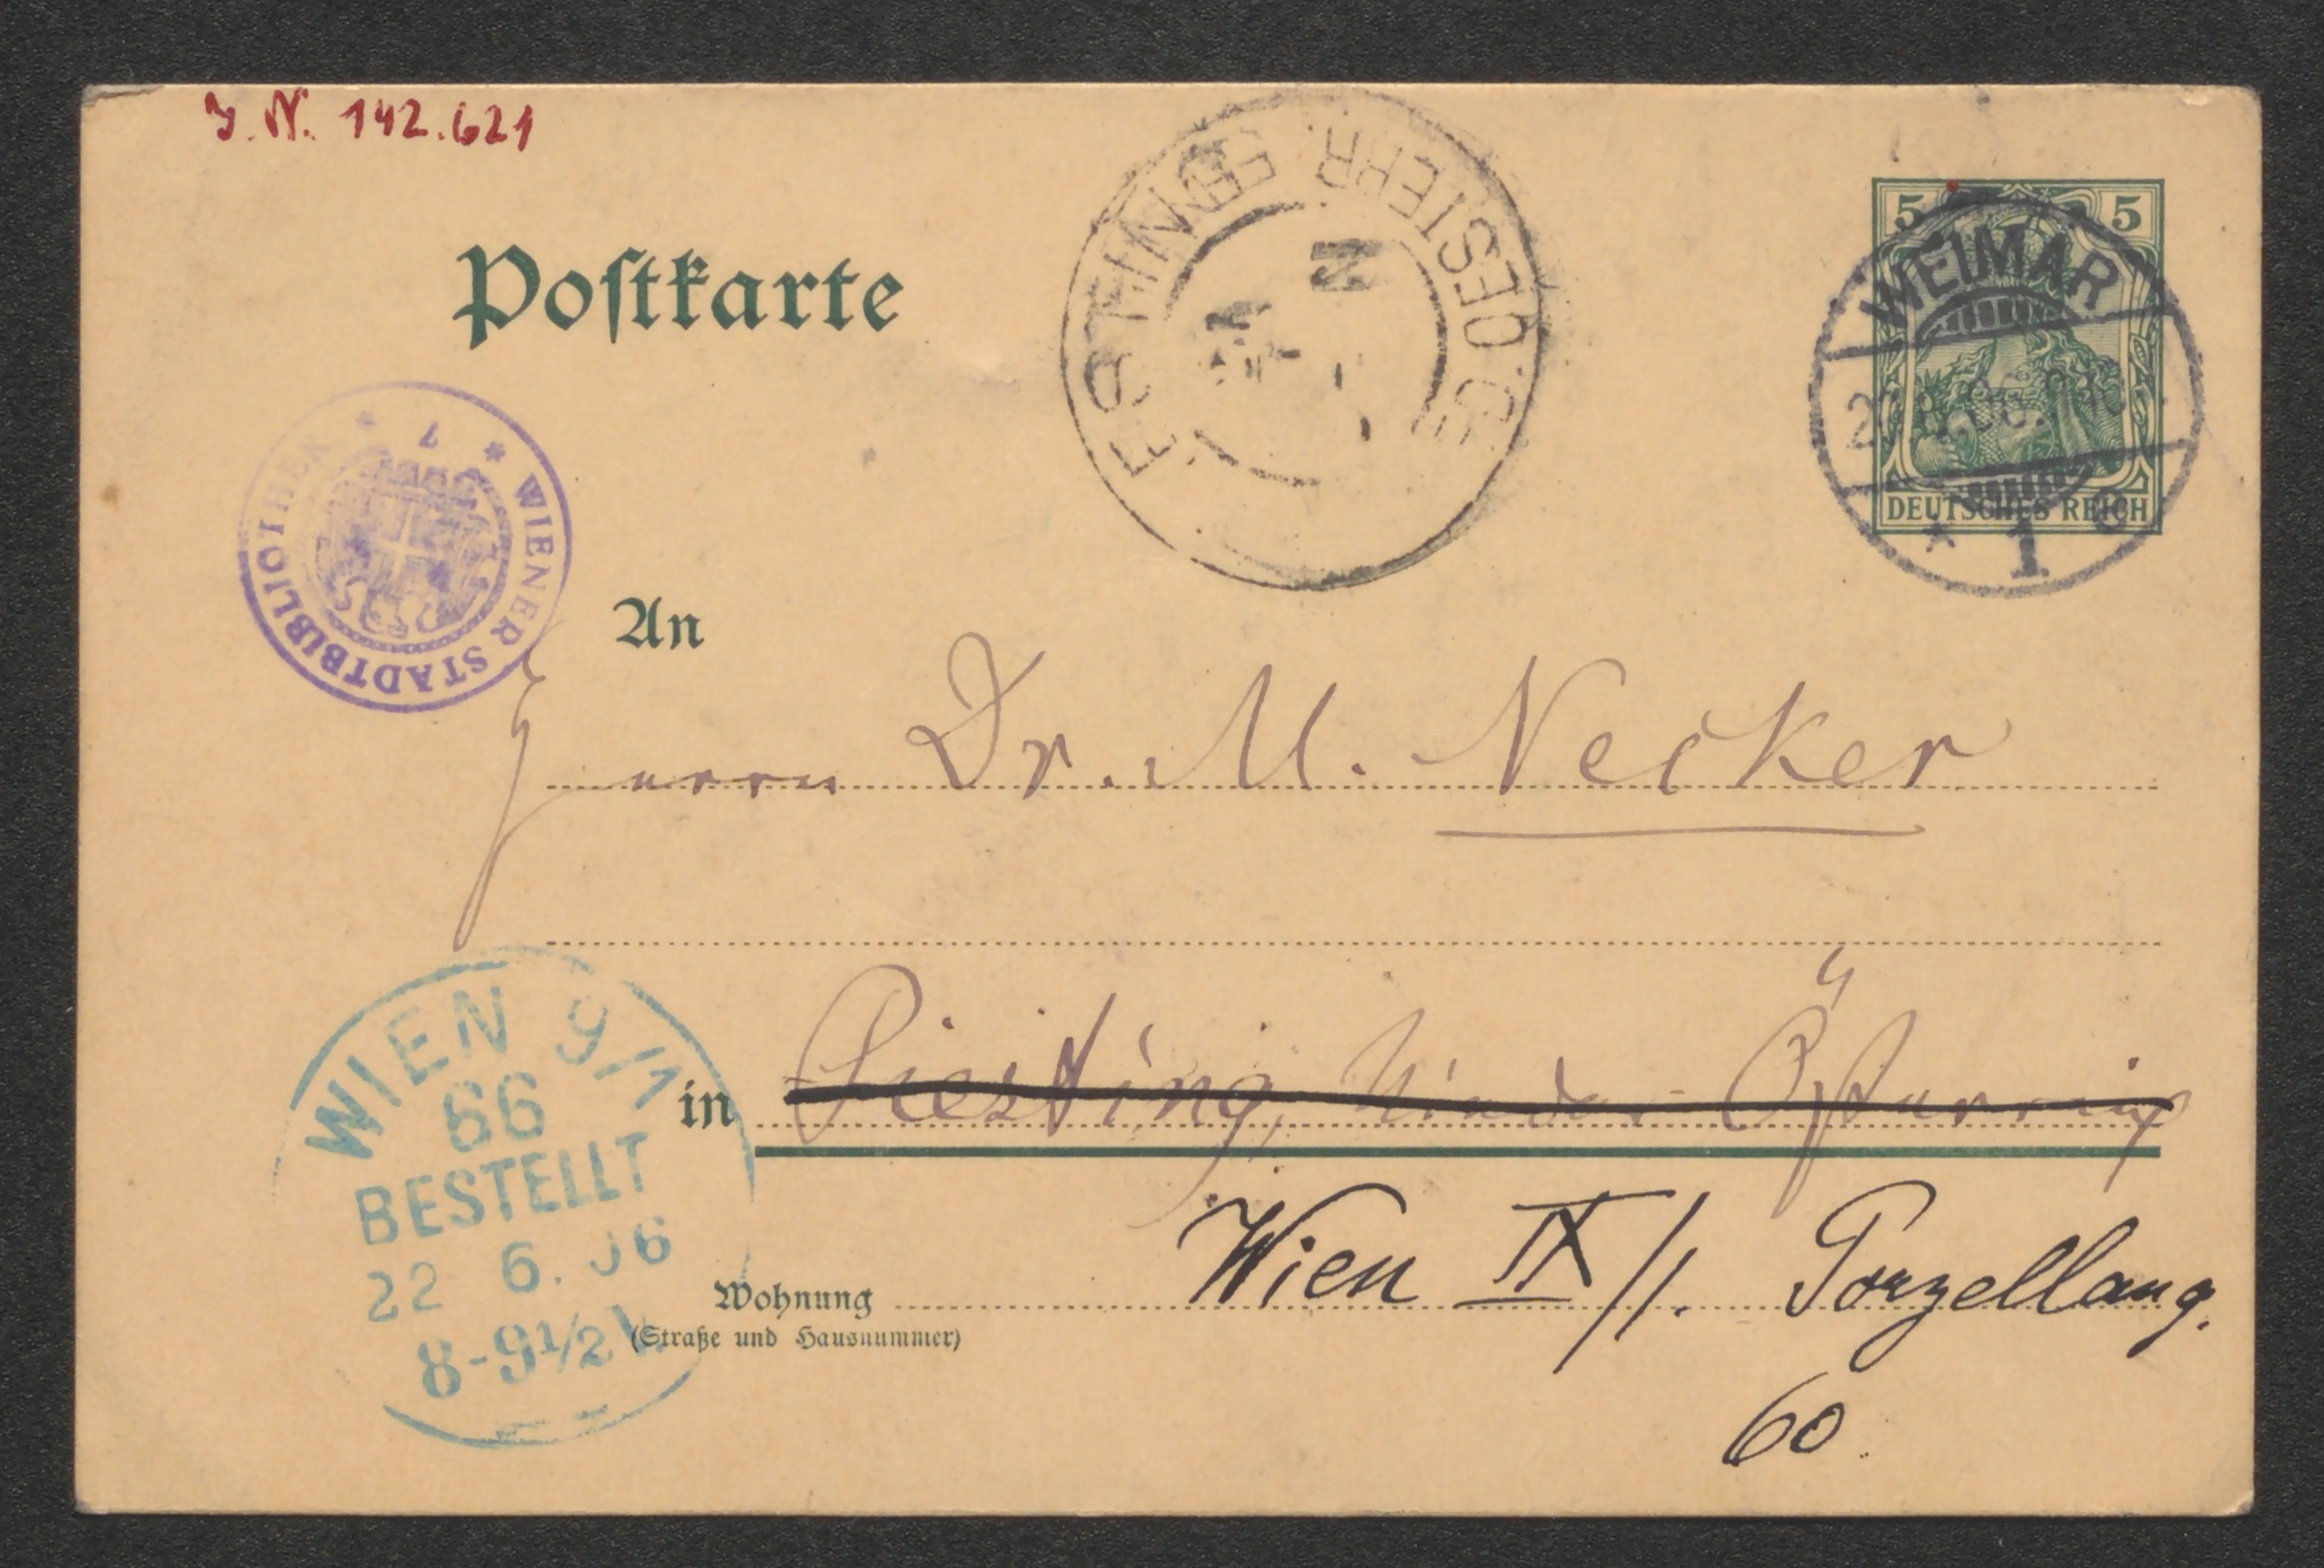 J. N. 142.621
Postkarte
5 5
WEIMAR
DEUTSCHES REICH
* 1 c
N. OESTERR.
WIENER STADTBIBLIOTHEK
* 1 *
An
Herrn Dr. M. Necker
in Piesting, Nieder-Österreich
WIEN 9/1
66
BESTELLT
22 6. 06
8-9½ V.
Wohnung
(Straße und Hausnummer)
Wien IX/1. Porzellang.
60.